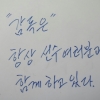 "감독은"
항상 선수 여러분과
함께 하고 있다.